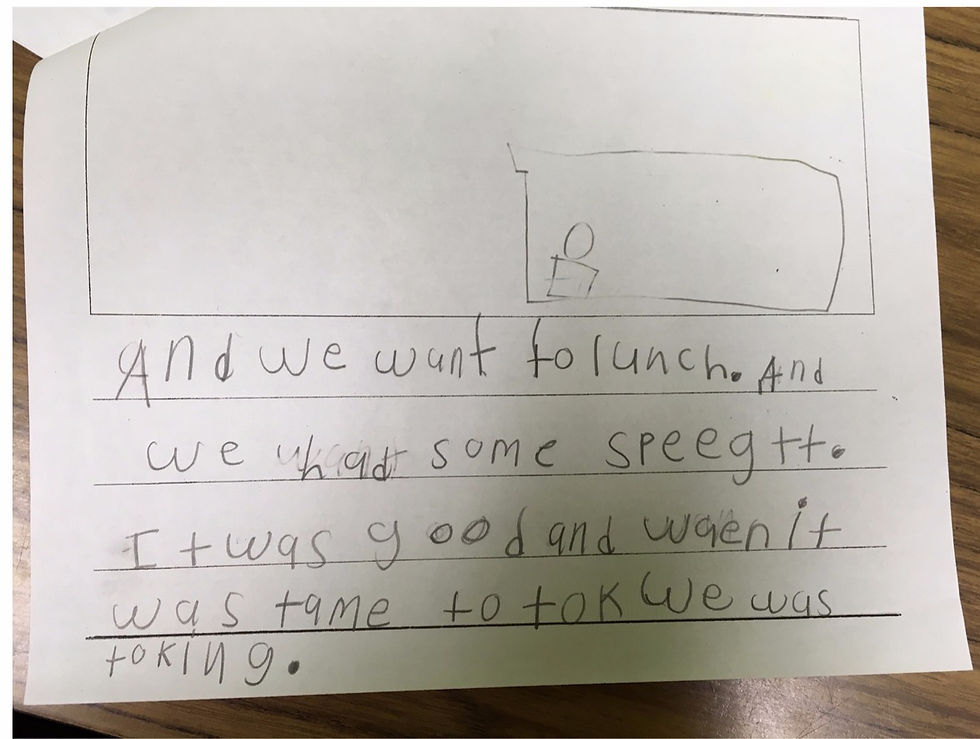 And we want to lunch. And
we had some speegtt.
It was good and waen it
was tame to tok We was
toking.